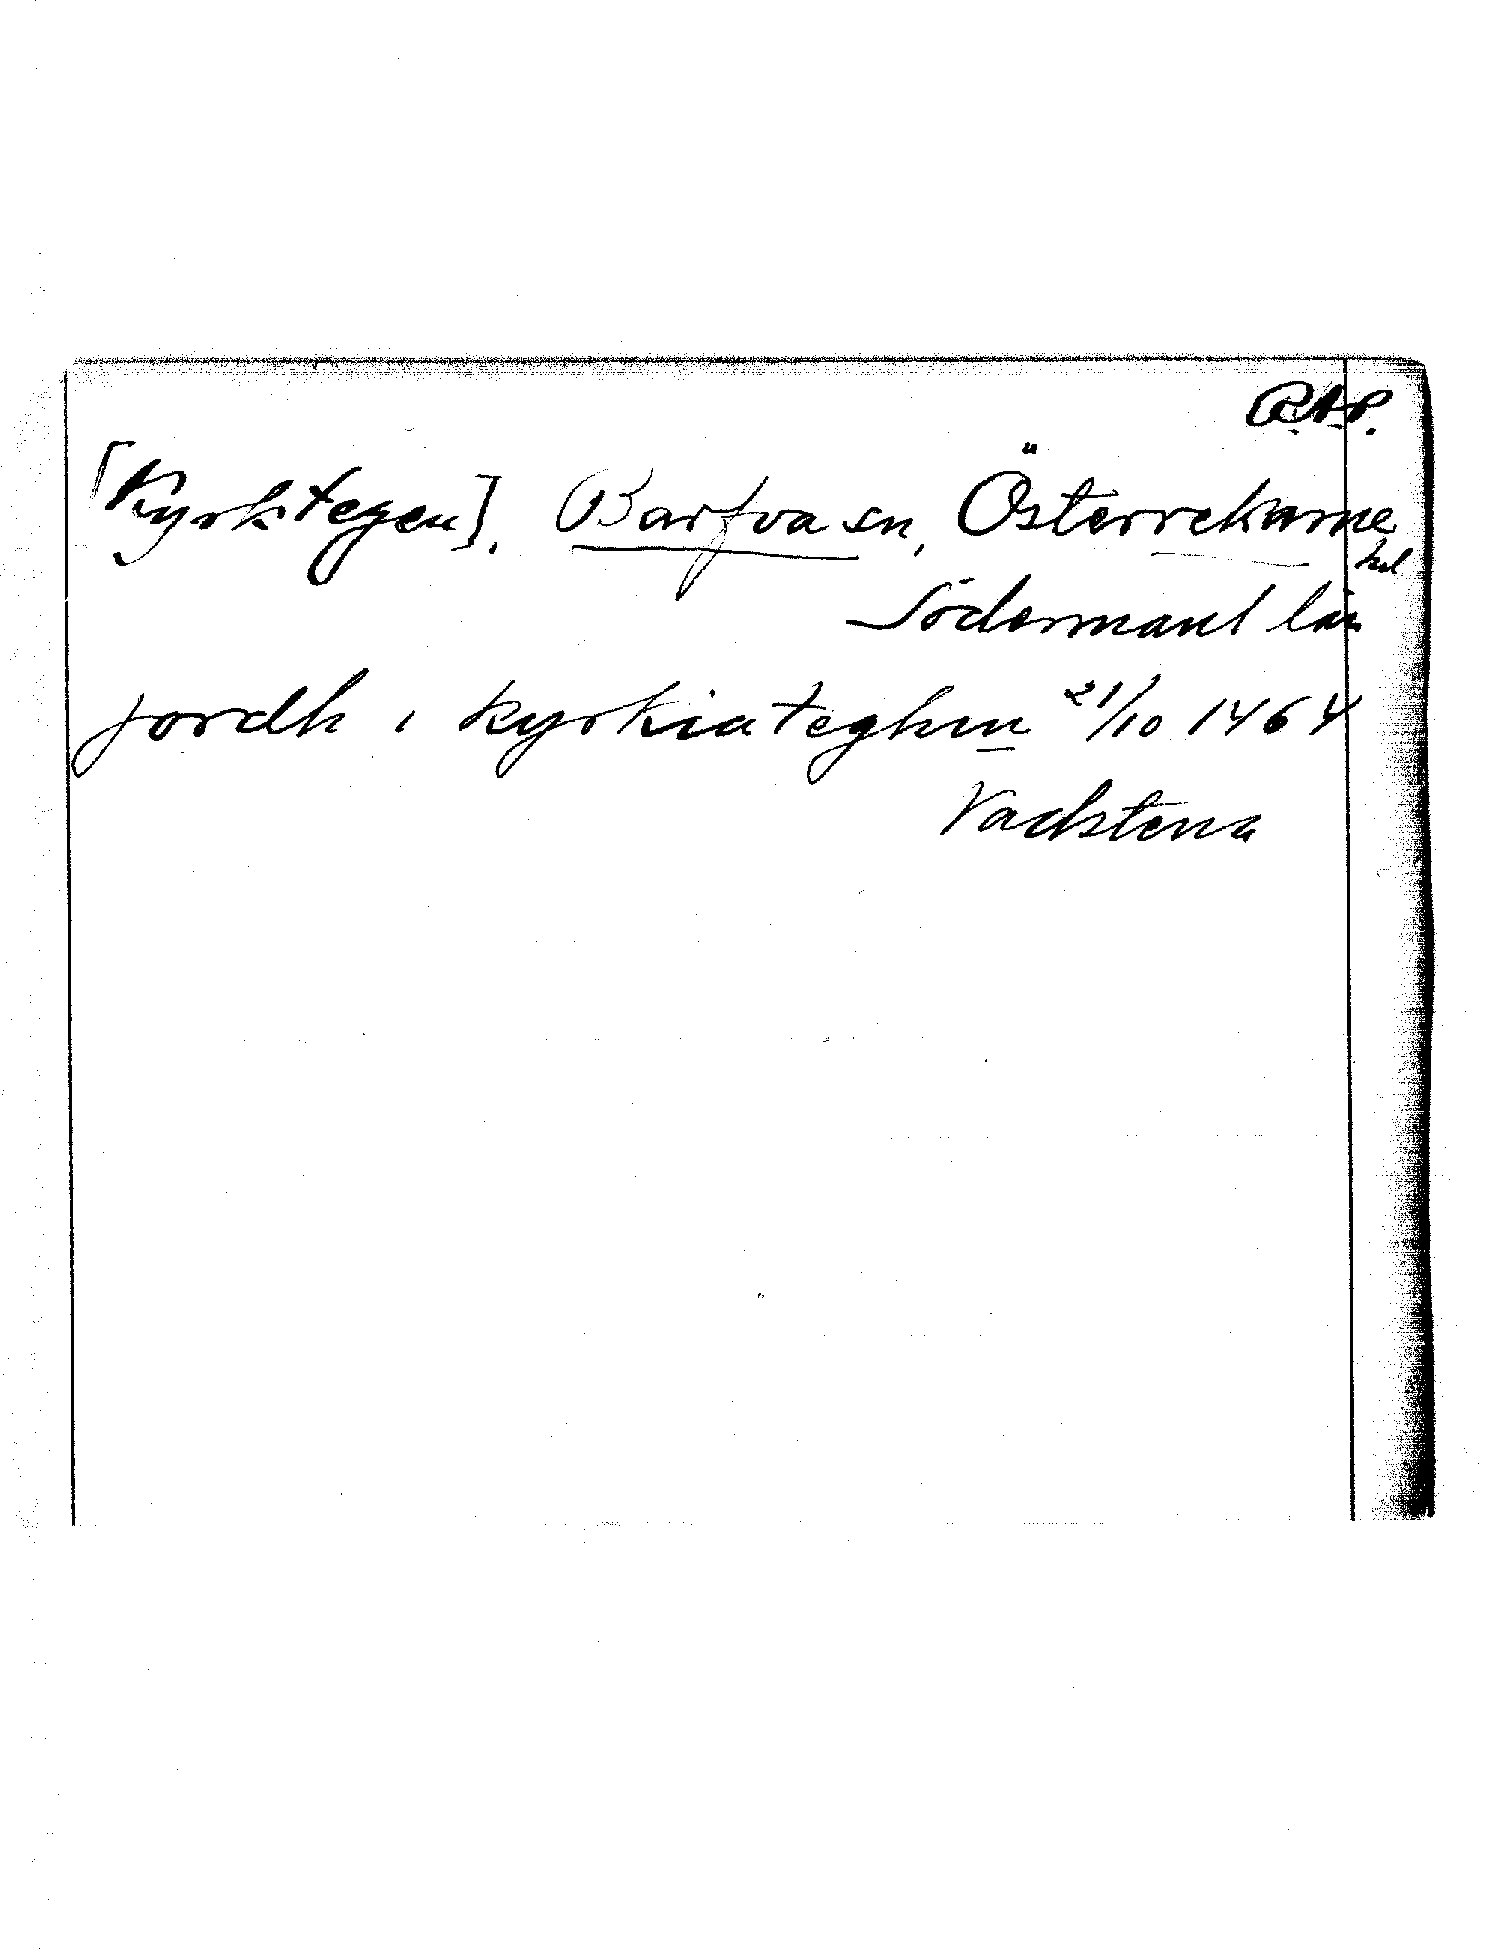 R.A.P.
[Kyrktegen]. Barfva sn, Österrekarne
hd
Södermanl län
jordh i kyrkiateghin 21/10 1464
Vadstena